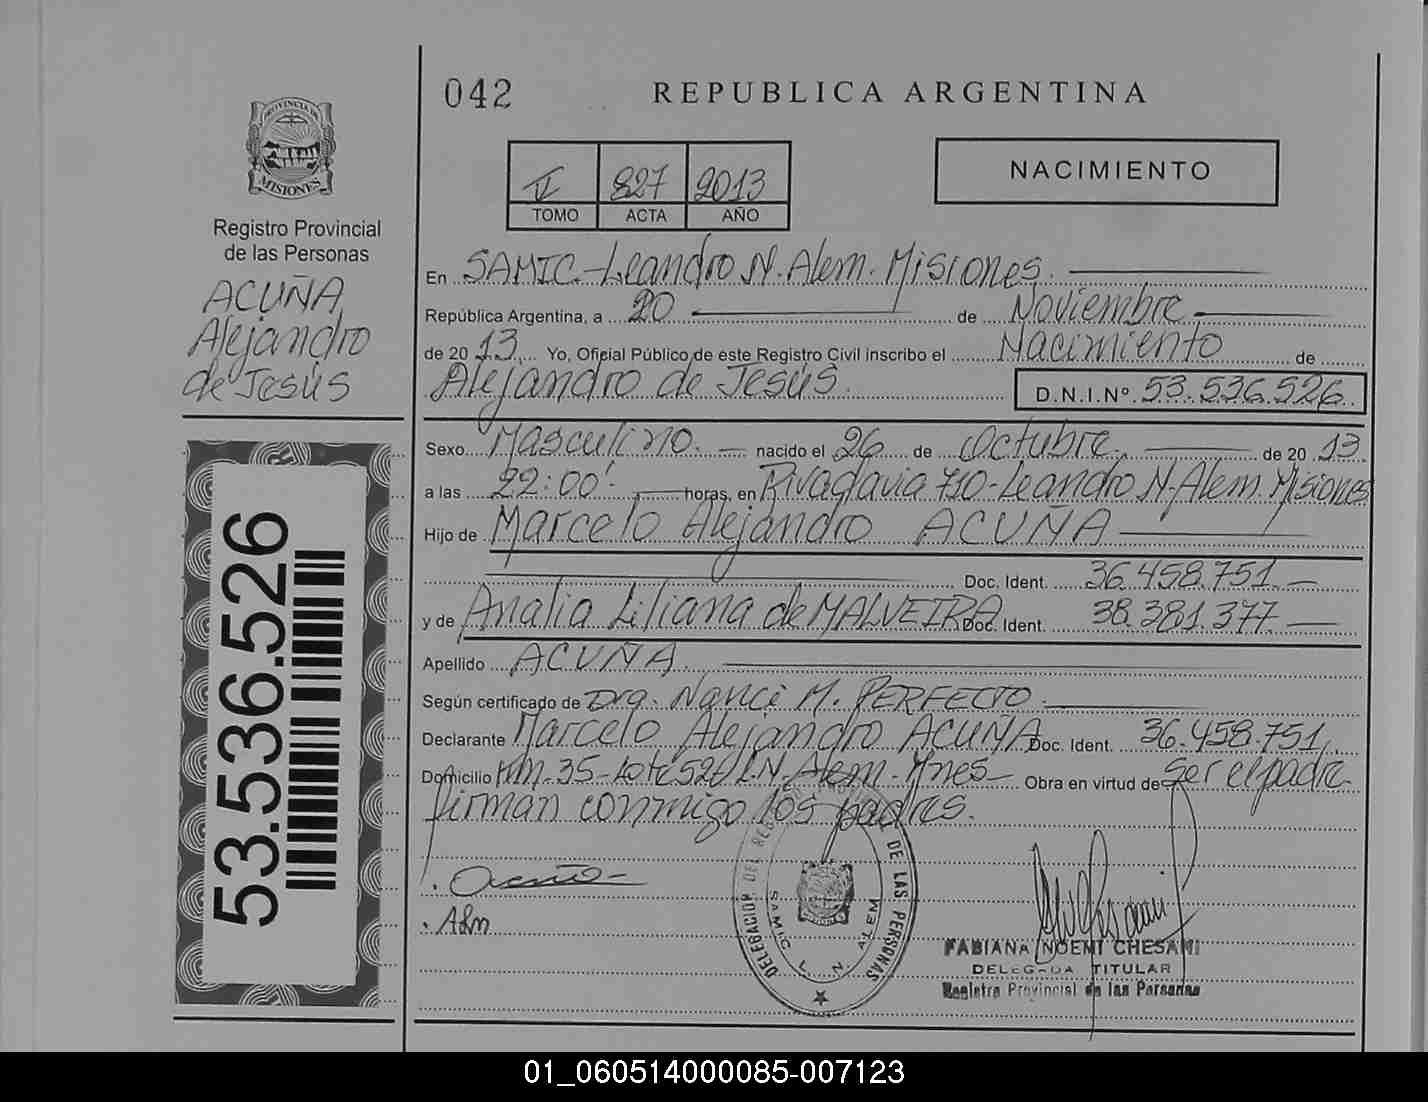 042
REPUBLICA ARGENTINA
PROVINCIA DE
MISIONES
Registro Provincial
de las Personas
ACUÑA
Alejandro
de Jesús
II 827 2013
TOMO ACTA AÑO
NACIMIENTO
En SAMIC-Leandro N. Alem. Misiones.
República Argentina, a 20 de Noviembre
de 2013 Yo, Oficial Público de este Registro Civil inscribo el Nacimiento de
Alejandro de Jesús. D.N.I.Nº 53.536.526
Sexo Masculino. nacido el 26 de Octubre de 2013
a las 22:00' horas, en Rivadavia 710-Leandro N. Alem. Misiones
Hijo de Marcelo Alejandro ACUÑA
Doc. Ident. 36.458.751
y de Analia Liliana de MALVEIRA Doc. Ident. 38.381.377
Apellido ACUÑA
Según certificado de Dra. Nanci M. PERFECTO
Declarante Marcelo Alejandro ACUÑA Doc. Ident. 36.458.751
Domicilio Km. 35-Lote 52 L.N. Alem-Mnes Obra en virtud de ser el padre
firman conmigo los padres.
53.536.526
Acuña
DELEGACION DEL REG DE LAS PERSONAS
SAMIC L. N. ALEM
FABIANA NOEMI CHESANI
DELEGADA TITULAR
Registro Provincial de las Personas
01_060514000085-007123